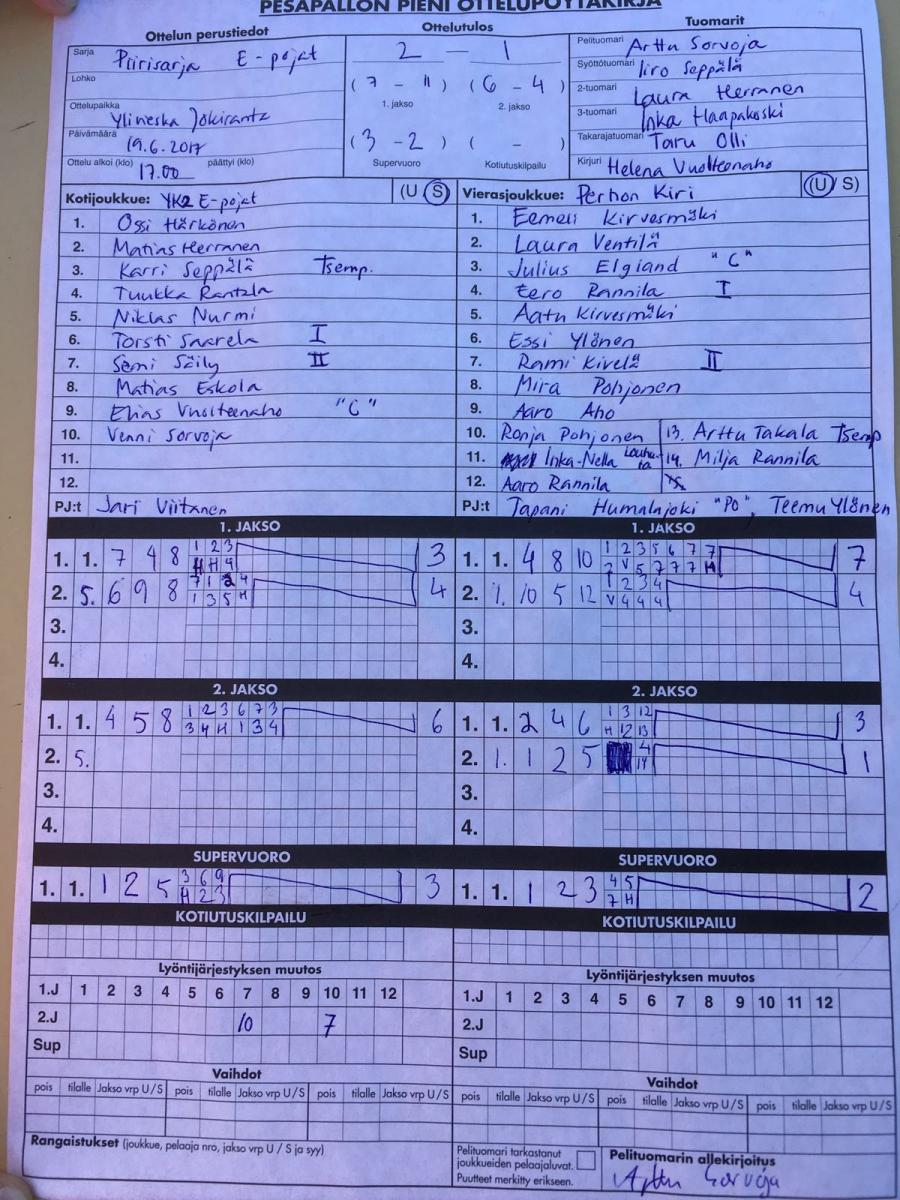 PESÄPALLON PIENI OTTELUPÖYTÄKIRJA
Ottelun perustiedot
Sarja Piirisarja E-pojat
Lohko
Ottelupaikka Ylineska Jokiranta
Päivämäärä 19.6.2017
Ottelu alkoi (klo) 17.00 päättyi (klo)
Ottelutulos
2 - 1
(7 - 11) (6 - 4)
1. jakso 2. jakso
(3 - 2) ( - )
Supervuoro Kotiutuskilpailu
Tuomarit
Pelituomari Arttu Sorvoja
Syöttötuomari Iiro Seppälä
2-tuomari Laura Herranen
3-tuomari Inka Haapakoski
Takarajatuomari Taru Olli
Kirjuri Helena Vuolteenaho
Kotijoukkue: YK2 E-pojat (U S)
1. Ossi Härkönen
2. Matias Herranen
3. Karri Seppälä Tsemp.
4. Tuukka Rantala
5. Niklas Nurmi
6. Torsti Saarela I
7. Semi Säily II
8. Matias Eskola
9. Elias Vuolteenaho "C"
10. Venni Sorvoja
11.
12.
PJ:t Jari Viitanen
Vierasjoukkue: Perhon Kiri (U S)
1. Eemeli Kirvesmäki
2. Laura Ventilä
3. Julius Elgland "C"
4. Eero Rannila I
5. Aatu Kirvesmäki
6. Essi Ylönen
7. Rami Kivelä II
8. Mira Pohjonen
9. Aaro Aho
10. Ronja Pohjonen 13. Arttu Takala Tsemp
11. Inka-Nella 14. Milja Rannila
12. Aaro Rannila
PJ:t Tapani Humalajoki "PO", Teemu Ylönen
1. JAKSO
1. 1. 7 4 8 1 2 3 3
H H 4
2. 5. 6 9 8 7 1 2 4 4
1 3 5 H
3.
4.
1. JAKSO
1. 1. 4 8 10 1 2 3 5 6 7 7 7
2 V 5 7 7 7 H
2. 1. 10 5 12 1 2 3 4 4
V 4 4 4
3.
4.
2. JAKSO
1. 1. 4 5 8 1 2 3 6 7 3 6
3 H H 1 3 4
2. 5.
3.
4.
2. JAKSO
1. 1. 2 4 6 1 3 12 3
H 12 13
2. 1. 1 2 5 4 1
14
3.
4.
SUPERVUORO
1. 1. 1 2 5 3 6 9 3
H 2 3
SUPERVUORO
1. 1. 1 2 3 4 5 2
7 H
KOTIUTUSKILPAILU
KOTIUTUSKILPAILU
Lyöntijärjestyksen muutos
1.J 1 2 3 4 5 6 7 8 9 10 11 12
2.J 10 7
Sup
Lyöntijärjestyksen muutos
1.J 1 2 3 4 5 6 7 8 9 10 11 12
2.J
Sup
Vaihdot
pois tilalle Jakso vrp U/S pois tilalle Jakso vrp U/S pois tilalle Jakso vrp U/S
Vaihdot
pois tilalle Jakso vrp U/S pois tilalle Jakso vrp U/S pois tilalle Jakso vrp U/S
Rangaistukset (joukkue, pelaaja nro, jakso vrp U / S ja syy)
Pelituomari tarkastanut
joukkueiden pelaajaluvat.
Puutteet merkitty erikseen.
Pelituomarin allekirjoitus
Arttu Sorvoja